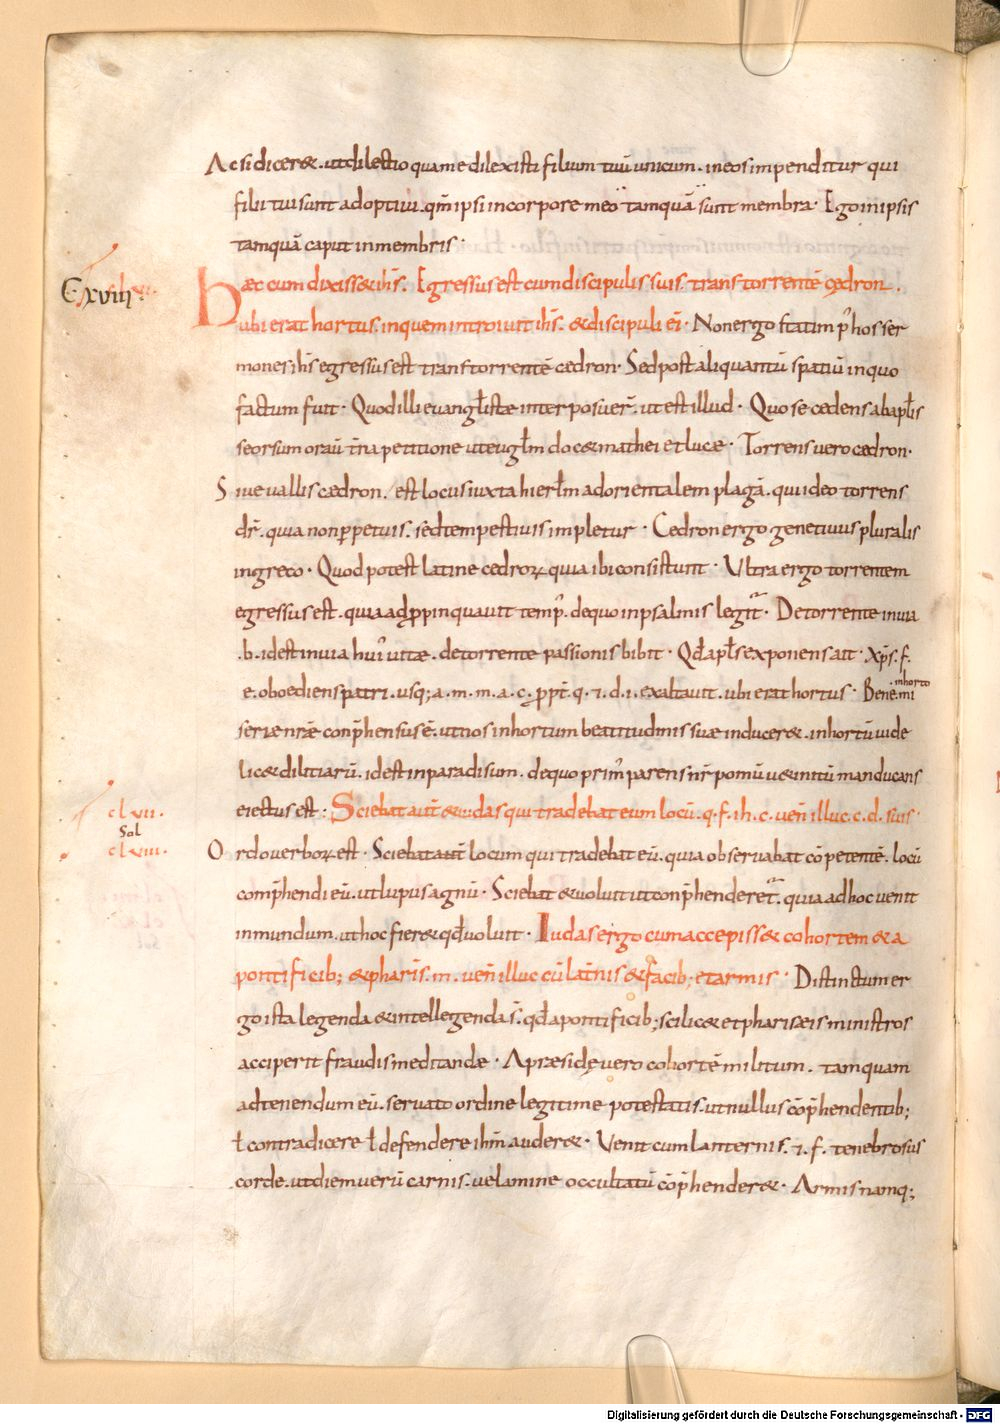 Ac si dicer&. ut dilectio qua me dilexisti filium tuū unicum. in eos impenditur qui
filii tui sunt adoptiui. qm̄ ipsi in corpore meo tamquā sunt membra. Ego in ipsis
tamquā caput in membris.
Cxviii.
Haec cum dixiss& ih̄s. Egressus est cum discipulis suis. trans torrentē cędron.
ubi erat hortus. in quem introiuit ih̄s. & discipuli ei᾽. Non ergo statim p᾽ hos ser
mones ih̄s egressus est trans torrentē cedron. Sed post aliquantū spatiū in quo
factum fuit. Quod illi euangl̄istae interposuer̄. ut est illud. Quo secedens ab apl̄is
seorsum orau᾽ trina petitione ut eugl̄m doc& mathei et lucae. Torrens uero cædron.
Siue uallis cædron. est locus iuxta hierl̄m ad orientalem plagā. qui ideo torrens
dr̄. quia non ꝑpetuis. sed tempestiuis impletur. Cedron ergo genetiuus pluralis
in greco. Quod potest latine cedroꝝ quia ibi consistunt. Ultra ergo torrentem
egressus est. quia adꝓpinquauit temp᾽. de quo in psalmis legit᾽. De torrente in uia
.b. id est in uia hui᾽ uitae. de torrente passionis bibit. Qd̄ apl̄s exponens ait. Xp̄s. f.
e. oboediens patri. usq; a. m. m. a. c. ꝓpt̄. q. ⁊. d. i. exaltauit. ubi erat hortus. Bene in horto
seruenræ conp̄hensus ē. ut nos in hortum beatitudinis suae inducer&. in hortū uide
lic& dilitiarū. id est in paradisum. de quo prim᾽ parens nr̄ pomū uetitū manducans
eiectus est: Sciebat aut̄ & iudas qui tradebat eum locū. q. f. ih̄. c. uen̄ illuc. c. d. suis.
clvii.
Sol
clviii.
Ordo uerboꝝ est. Sciebat aut̄ locum qui tradebat eū. quia obseruabat cōpetentē. locū
comp̄hendi eū. ut lupus agnū. Sciebat & uoluit ut conp̄henderet᾽. quia ad hoc uenit
in mundum. ut hoc fier& qd̄ uoluit. Iudas ergo cum accepiss& cohortem & a
pontificib; & pharis̄. m. uen̄ illuc cū lat̄nis & facib; et armis. Distinctum er
go ista legenda & intellegenda s̄. qd̄ a pontificib; scilic& et pharisæis ministros
acciperit fraudis meditandæ. A præside uero cohortē militum. tamquam
ad tenendum eū. seruato ordine legitime potestatis. ut nullus cōp̄hendentib;
ł contradicere ł defendere ih̄m auder&. Venit cum lanternis. ⁊. f. tenebrosus
corde. ut diem uerū carnis. uelamine occultatū cōp̄hender&. Armis namq;
Digitalisierung gefördert durch die Deutsche Forschungsgemeinschaft - DFG